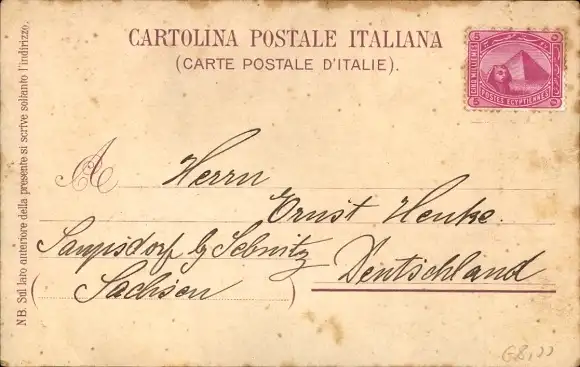 CARTOLINA POSTALE ITALIANA
(CARTE POSTALE D'ITALIE).
5 5
CINQ MILLIEMES
POSTES EGYPTIENNES
5 5
NB. Sul lato anteriore della presente si scrive soltanto l'indirizzo.
A Herrn
Ernst Henke.
b/ Sebnitz
Deutschland
(Sachsen)